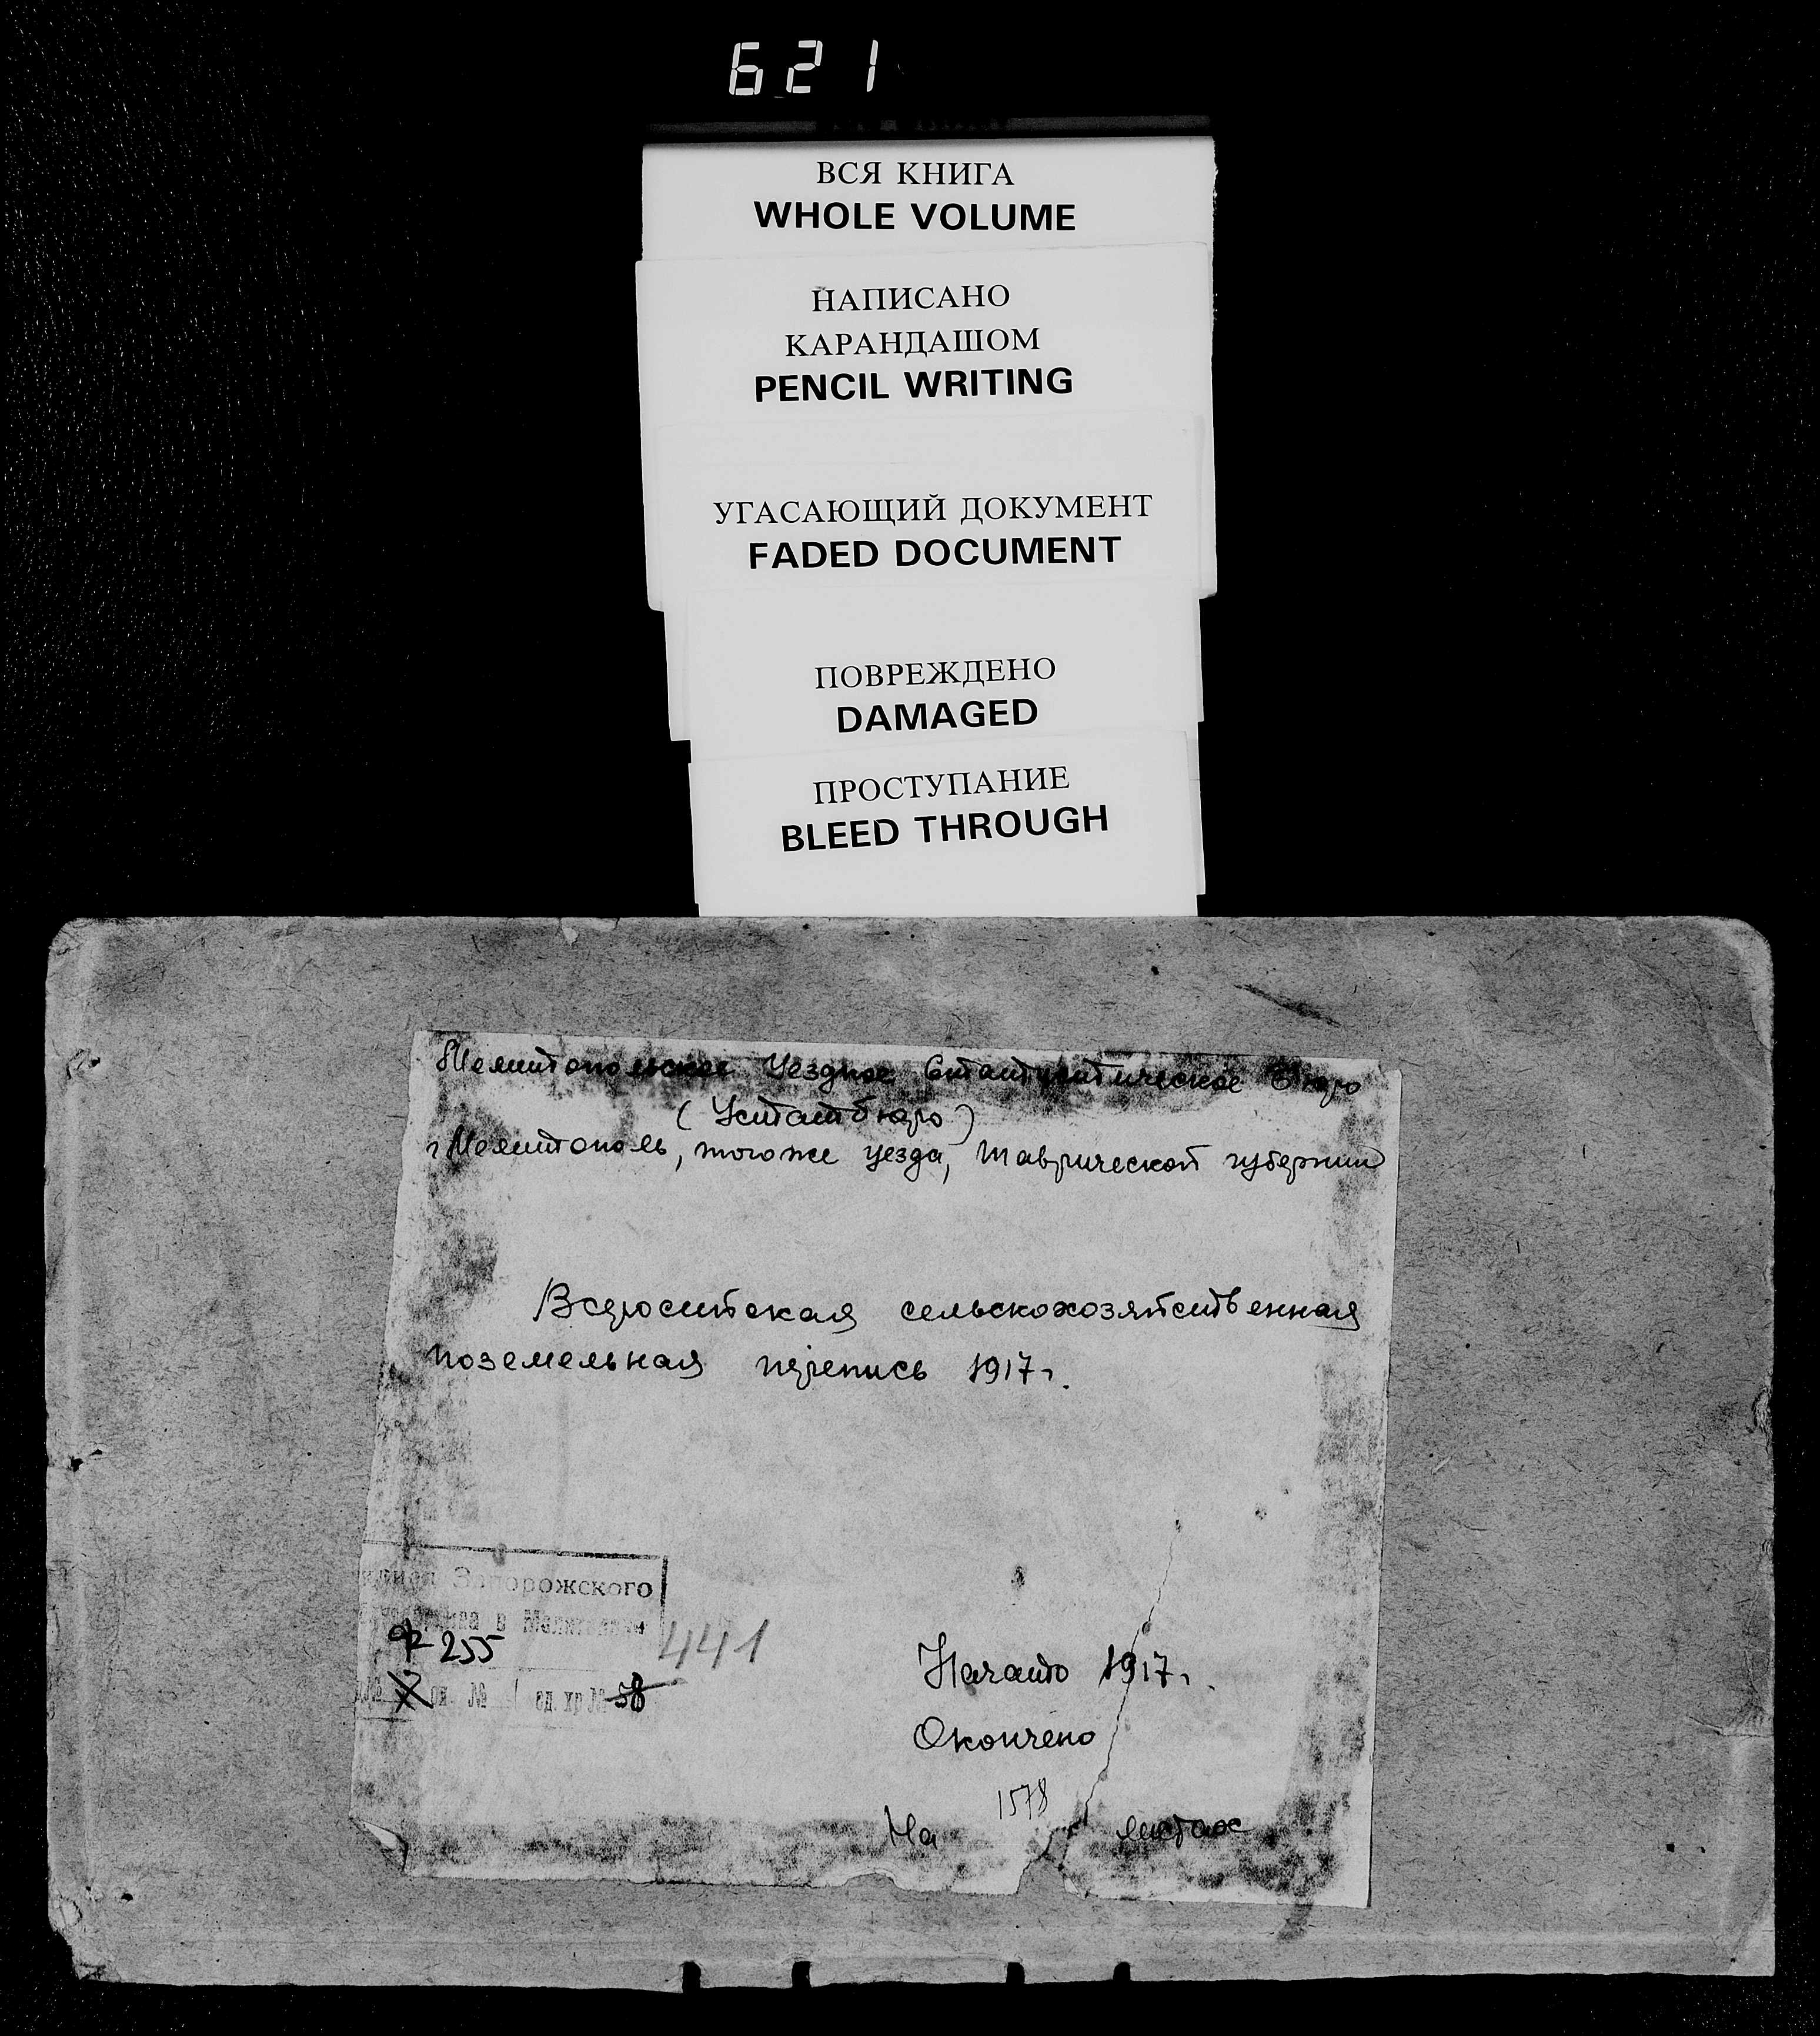 621
ВСЯ КНИГА
WHOLE VOLUME
НАПИСАНО
КАРАНДАШОМ
PENCIL WRITING
УГАСАЮЩИЙ ДОКУМЕНТ
FADED DOCUMENT
ПОВРЕЖДЕНО
DAMAGED
ПРОСТУПАНИЕ
BLEED THROUGH
Мелитопольское Уездное Статистическое Бюро
(Устатбюро)
г Мелитополь, того же уезда, Таврической губернии
Всероссийская сельскохозяйственная
поземельная перепись 1917 г.
Запорожского
в Мелитополе
Ф 255 441
№ ед. хр № 58
Начато 1917 г.
Окончено
На 1578 листах